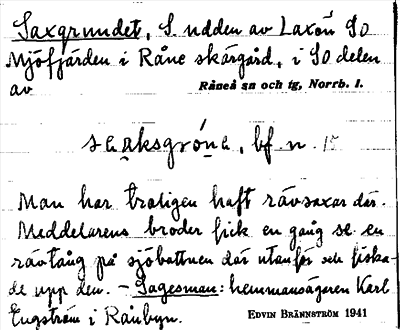 Saxgrundet, S. udden av Laxön SO
Mjöfjärden i Råne skärgård, i SO delen
av Råneå sn och tg, Norrb. l.
bf. n.
Man har troligen haft rävsaxar där.
Meddelarens broder fick en gång se en
rävtång på sjöbottnen där utanför och fiska-
de upp den. – Sagesman: hemmansägaren Karl
Engström i Rånbyn.
EDVIN BRÄNNSTRÖM 1941